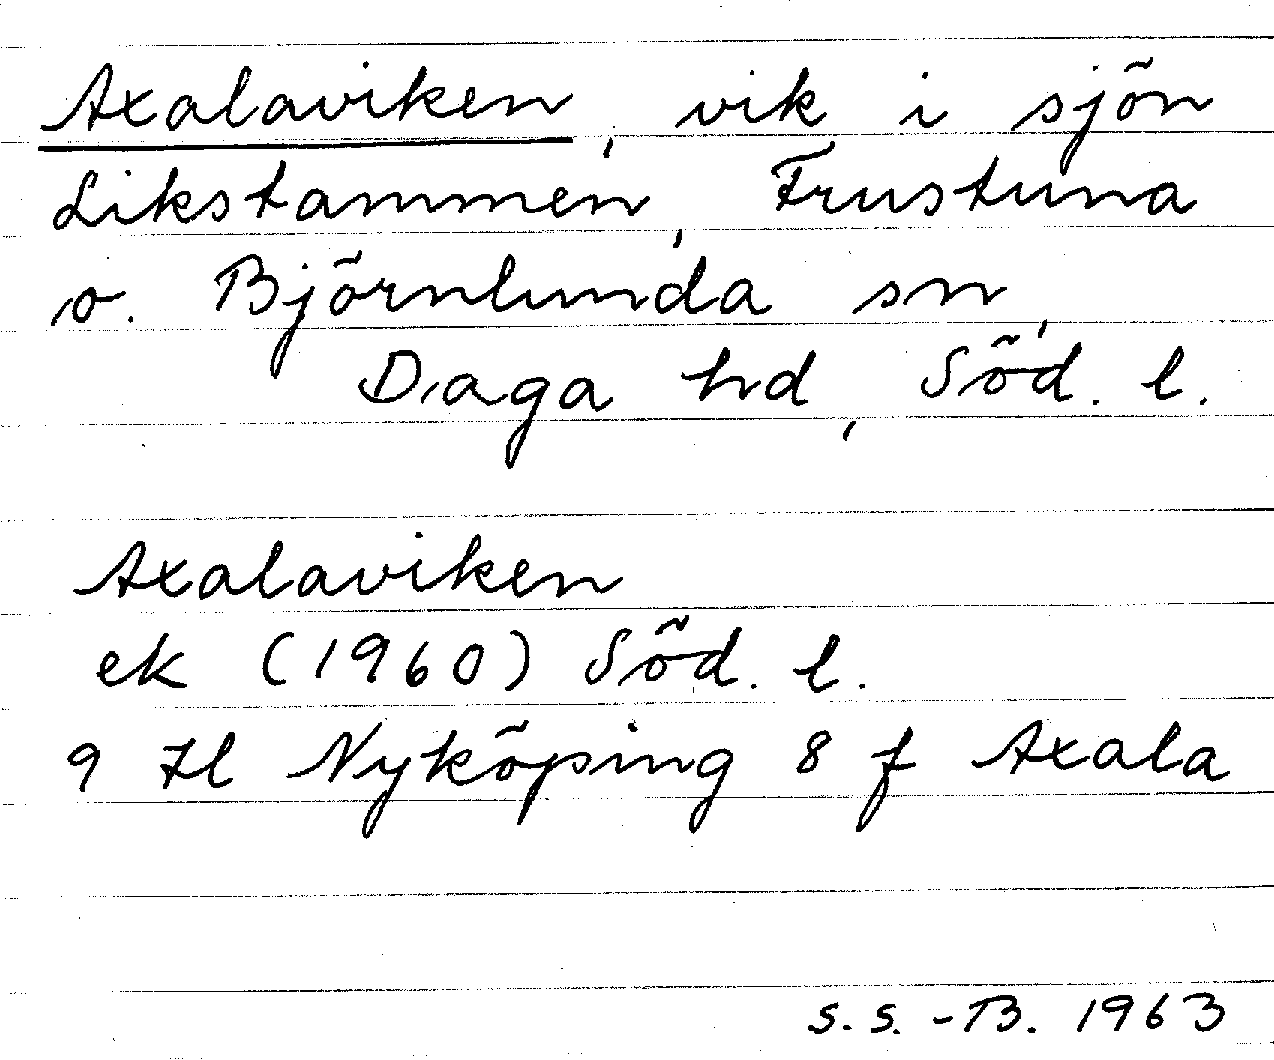 Axalaviken, vik i sjön
Likstammen, Frustuna
o. Björnlunda sn,
Daga hd, Söd. l.
Axalaviken
ek (1960) Söd. l.
9 H Nyköping 8 f Axala
S.S.-B. 1963